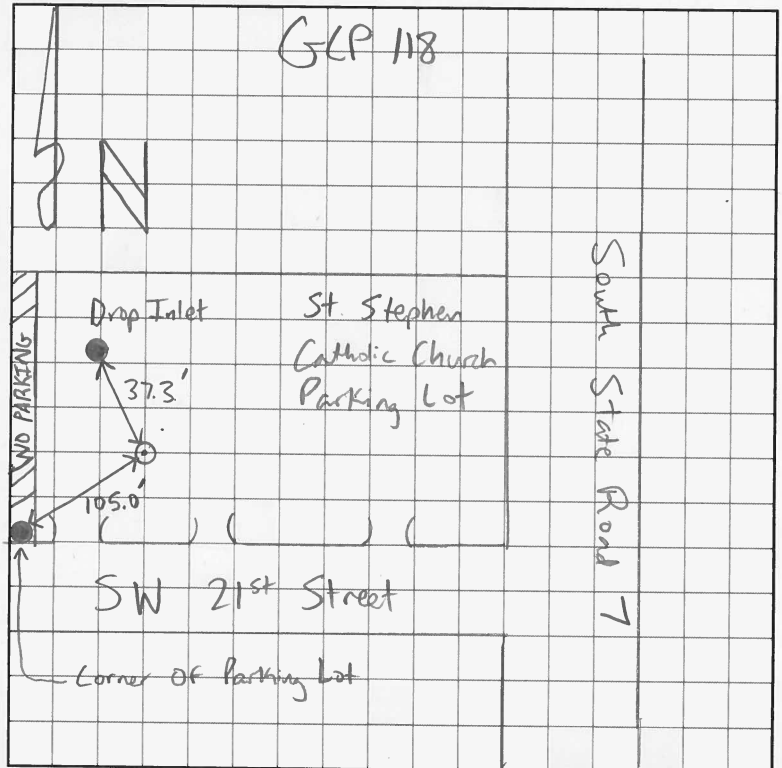 GCP 118
N
Drop Inlet
St. Stephen
Catholic Church
Parking Lot
NO PARKING
37.3'
105.0'
South State Road 7
SW 21st Street
Corner Of Parking Lot